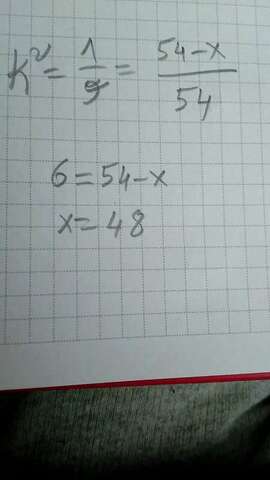 K² = 1/9 = 54-x/54
6=54-x
x=48